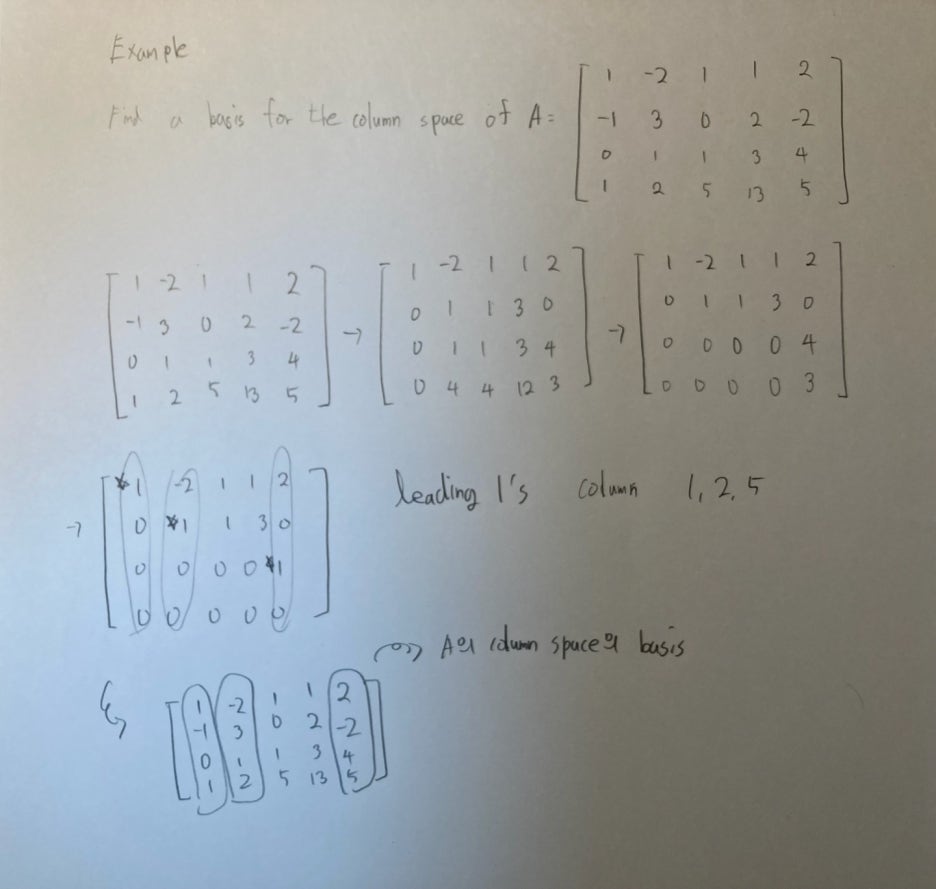 Example
Find a basis for the column space of A= [ 1 -2 1 1 2
-1 3 0 2 -2
0 1 1 3 4
1 2 5 13 5 ]
[ 1 -2 1 1 2 ] → [ 1 -2 1 1 2 ] → [ 1 -2 1 1 2 ]
[ -1 3 0 2 -2 ] [ 0 1 1 3 0 ] [ 0 1 1 3 0 ]
[ 0 1 1 3 4 ] [ 0 1 1 3 4 ] [ 0 0 0 0 4 ]
[ 1 2 5 13 5 ] [ 0 4 4 12 3 ] [ 0 0 0 0 3 ]
→ [ *1 -2 1 1 2 ] leading 1's column 1, 2, 5
[ 0 *1 1 3 0 ]
[ 0 0 0 0 *1 ]
[ 0 0 0 0 0 ]
→ A의 column space의 basis
[ 1 -2 1 1 2 ]
[ -1 3 0 2 -2 ]
[ 0 1 1 3 4 ]
[ 1 2 5 13 5 ]